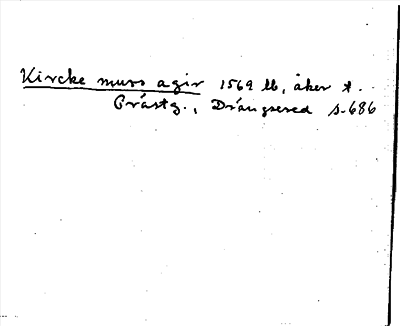 Kircke murs agir 1569 lb, åker t.
Prästg., Drängsered s. 686